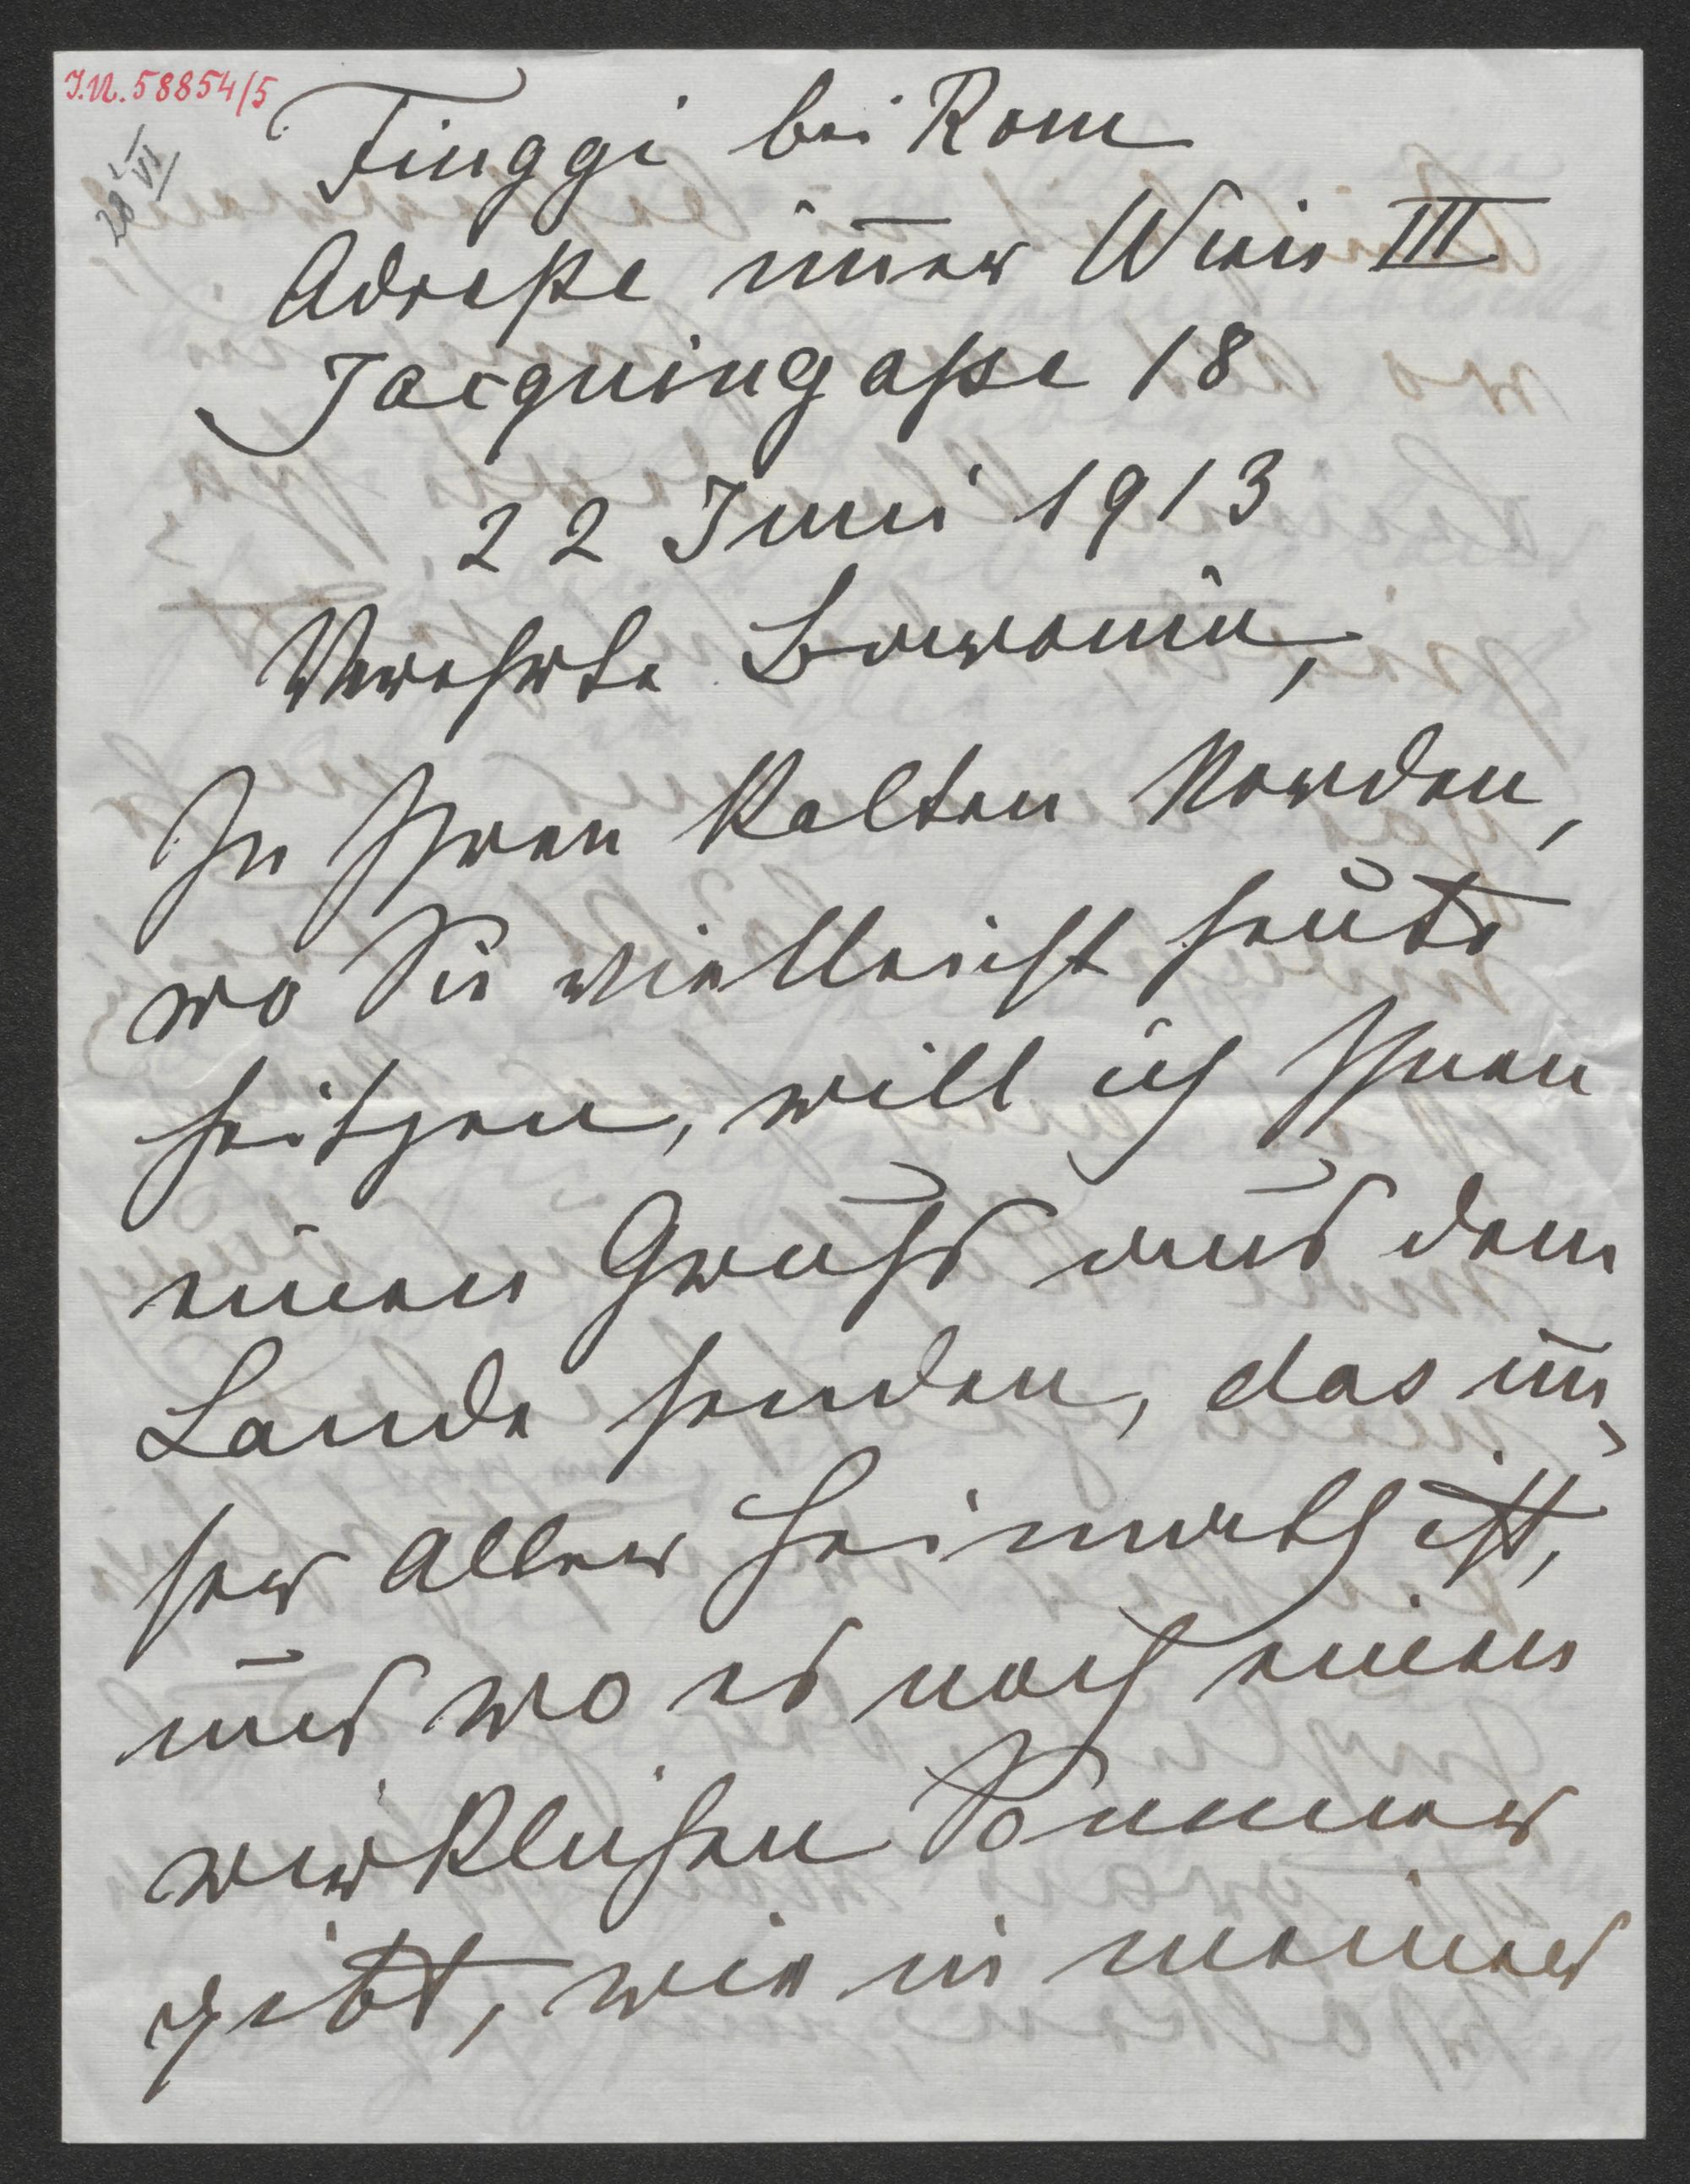 I.N. 58854/5
Fiuggi bei Rom
Adresse im̅er Wien III
Jacquingasse 18
22 Juni 1913
Verehrte Baronin,
In Ihrem kalten Norden,
wo Sie vielleicht heute
heitzen, will ich Ihnen
einen Gruss aus dem
Lande senden, das un-
ser aller Heimath ist,
und wo es noch einen
wirklichen Sommer
gibt, wie in meiner